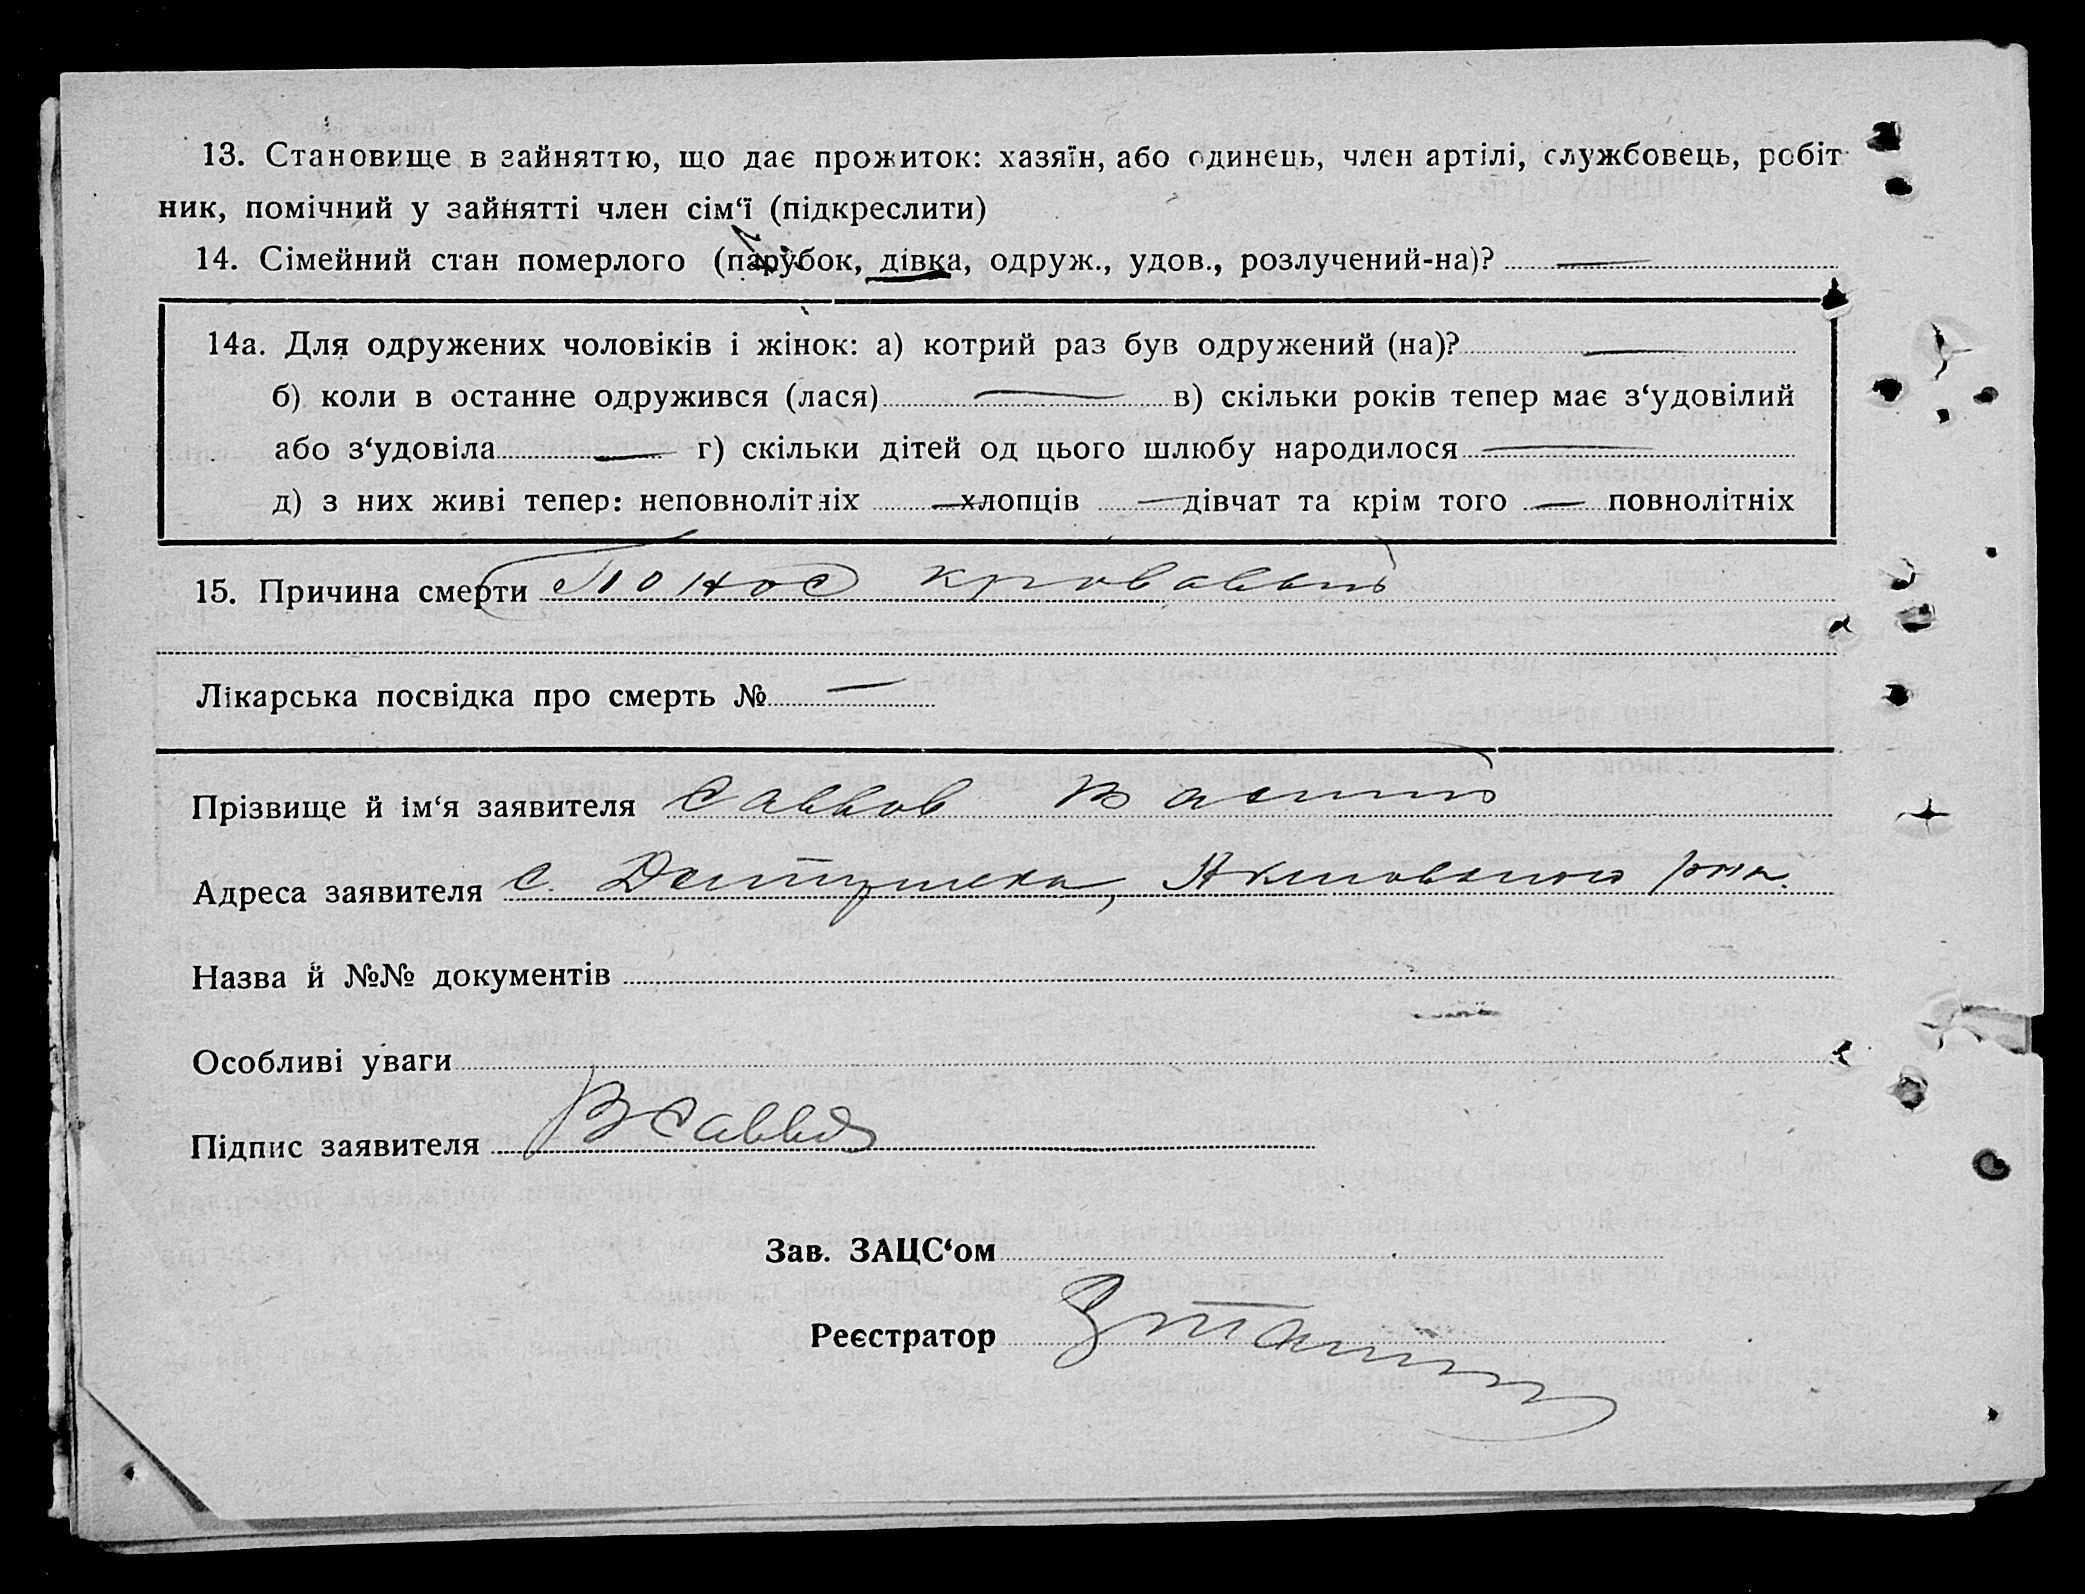 13. Становище в зайняттю, що дає прожиток: хазяїн, або одинець, член артілі, службовець, робіт
ник, помічний у зайнятті член сім‘ї (підкреслити)
14. Сімейний стан померлого (парубок, дівка, одруж., удов., розлучений-на)? —
14а. Для одружених чоловіків і жінок: а) котрий раз був одружений (на)? —
б) коли в останне одружився (лася) — в) скільки років тепер має з‘удовілий
або з‘удовіла — г) скільки дітей од цього шлюбу народилося —
д) з них живі тепер: неповнолітніх — хлопців — дівчат та крім того — повнолітніх
15. Причина смерти Понос кровавый
Лікарська посвідка про смерть № —
Прізвище й ім‘я заявителя Саввов
Адреса заявителя с.
Назва й №№ документів
Особливі уваги
Підпис заявителя
Зав. ЗАЦС‘ом
Реєстратор